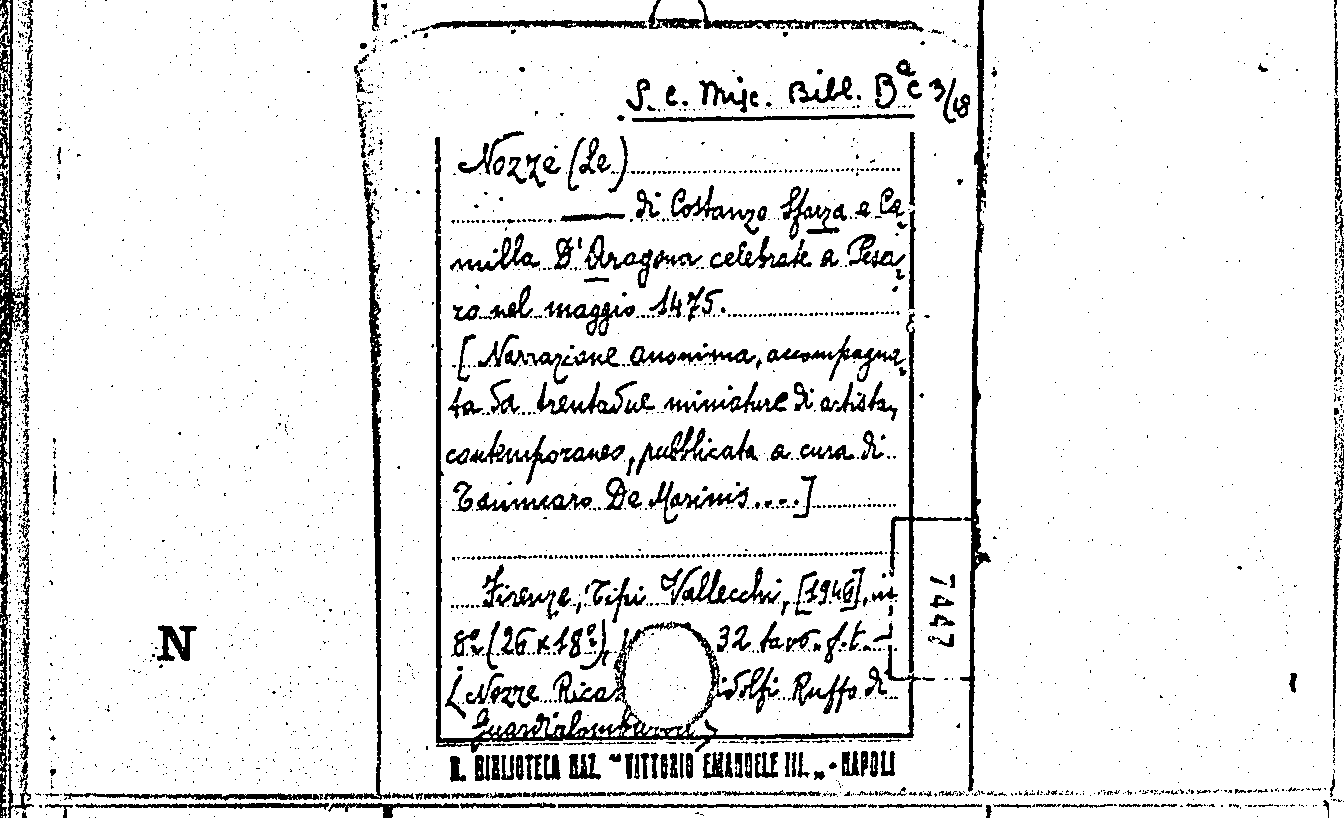 S. C. Misc. Bibl. Bª C 3/18
Nozze (Le)
— di Costanzo Sforza e Ca-
milla D'Aragona celebrate a Pesa-
ro nel maggio 1475.
[Narrazione anonima, accompagna-
ta da trentadue miniature di artista,
contemporaneo, pubblicata a cura di
Tammaro De Marinis....]
Firenze, Tipi Vallecchi, [1946], in
8º (26 x 18º), 32 tavo. f.t. -
(Nozze Ricas idolfi Ruffo di
Guardialombarda)
7447
N
R. BIBLIOTECA NAZ. "VITTORIO EMANUELE III." - NAPOLI